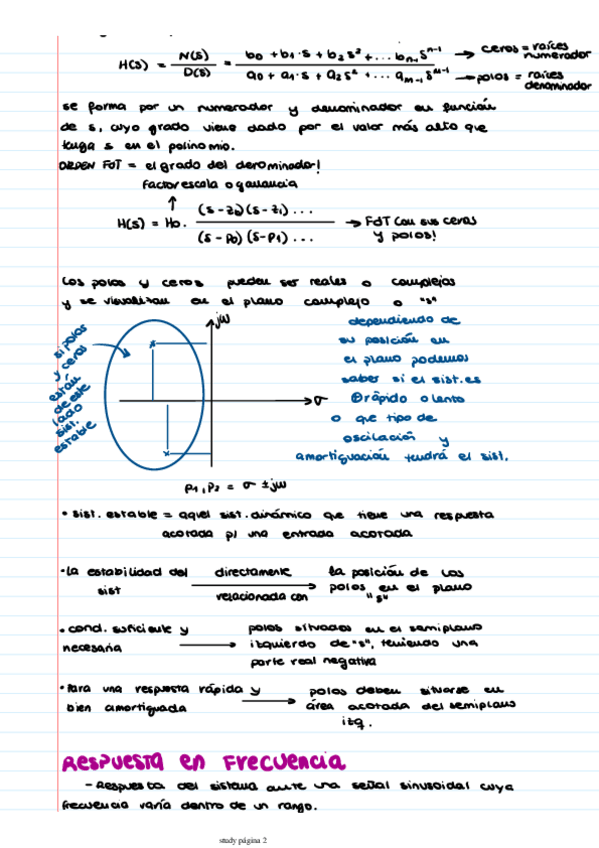 H(s) = N(s) / D(s) = b0 + b1·s + b2s² + ... bn-1 s^n-1 / a0 + a1·s + a2s² + ... am-1 s^m-1
→ ceros = raíces numerador
→ polos = raíces denominador
se forma por un numerador y denominador en función
de s, cuyo grado viene dado por el valor más alto que
tenga s en el polinomio.
ORDEN FdT = el grado del denominador!
Factor escala o ganancia
↑
H(s) = Ho. (s - z0)(s - z1) ... / (s - p0)(s - p1) ... → FdT con sus ceros
y polos!
Los polos y ceros pueden ser reales o complejos
y se visualizan en el plano complejo o "s"
si polos
y ceros
están
de este
lado
sist.
estable
jω
σ
dependiendo de
su posición en
el plano podemos
saber si el sist. es
rápido o lento
o que tipo de
oscilación y
amortiguación tendrá el sist.
P1, P2 = σ ± jω
• sist. estable = aquel sist. dinámico que tiene una respuesta
acotada p/ una entrada acotada
• La estabilidad del sist → directamente relacionada con → la posición de los polos en el plano "s"
• cond. suficiente y necesaria → polos situados en el semiplano
izquierdo de "s", teniendo una
parte real negativa
• Para una respuesta rápida y bien amortiguada → polos deben situarse en
área acotada del semiplano
izq.
RESPUESTA EN FRECUENCIA
- Respuesta del sistema ante una señal sinusoidal cuya
frecuencia varía dentro de un rango.
study página 2